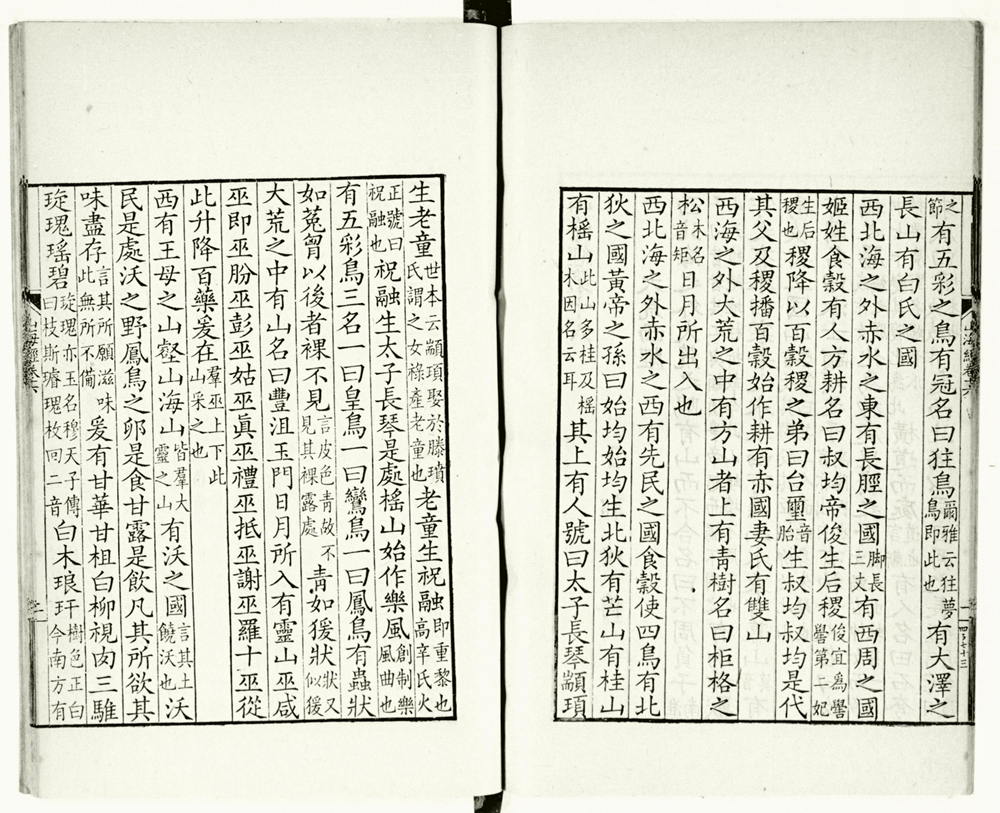 之節有五彩之鳥有冠名曰狂鳥爾雅云狂夢鳥即此也有大澤之
長山有白氏之國
西北海之外赤水之東有長脛之國脚長三丈有西周之國
姬姓食穀有人方耕名曰叔均帝俊生后稷俊宜爲嚳嚳第二妃
生后稷也稷降以百穀稷之弟曰台璽音胎生叔均叔均是代
其父及稷播百穀始作耕有赤國妻氏有雙山
西海之外大荒之中有方山者上有青樹名曰柜格之
松木名音矩日月所出入也
西北海之外赤水之西有先民之國食穀使四鳥有北
狄之國黃帝之孫曰始均始均生北狄有芒山有桂山
有榣山此山多桂及榣木因名云耳其上有人號曰太子長琴顓頊
生老童世本云顓頊娶於滕墳氏謂之女祿產老童也老童生祝融即重黎也高辛氏火
正號曰祝融也祝融生太子長琴是處榣山始作樂風創制樂風曲也
有五彩鳥三名一曰皇鳥一曰鸞鳥一曰鳳鳥有蟲狀
如菟胷以後者裸不見言皮色青故不見其裸露處青如猨狀狀又似猨
大荒之中有山名曰豐沮玉門日月所入有靈山巫咸
巫即巫朌巫彭巫姑巫眞巫禮巫抵巫謝巫羅十巫從
此升降百藥爰在羣巫上下此山采之也
西有王母之山壑山海山皆羣大靈之山有沃之國言其土饒沃也沃
民是處沃之野鳳鳥之卵是食甘露是飲凡其所欲其
味盡存言其所願滋味此無所不備爰有甘華甘柤白柳視肉三騅
琁瑰瑤碧琁瑰亦玉名穆天子傳曰枝斯璿瑰枚回二音白木琅玕樹色正白今南方有
山海經卷十六